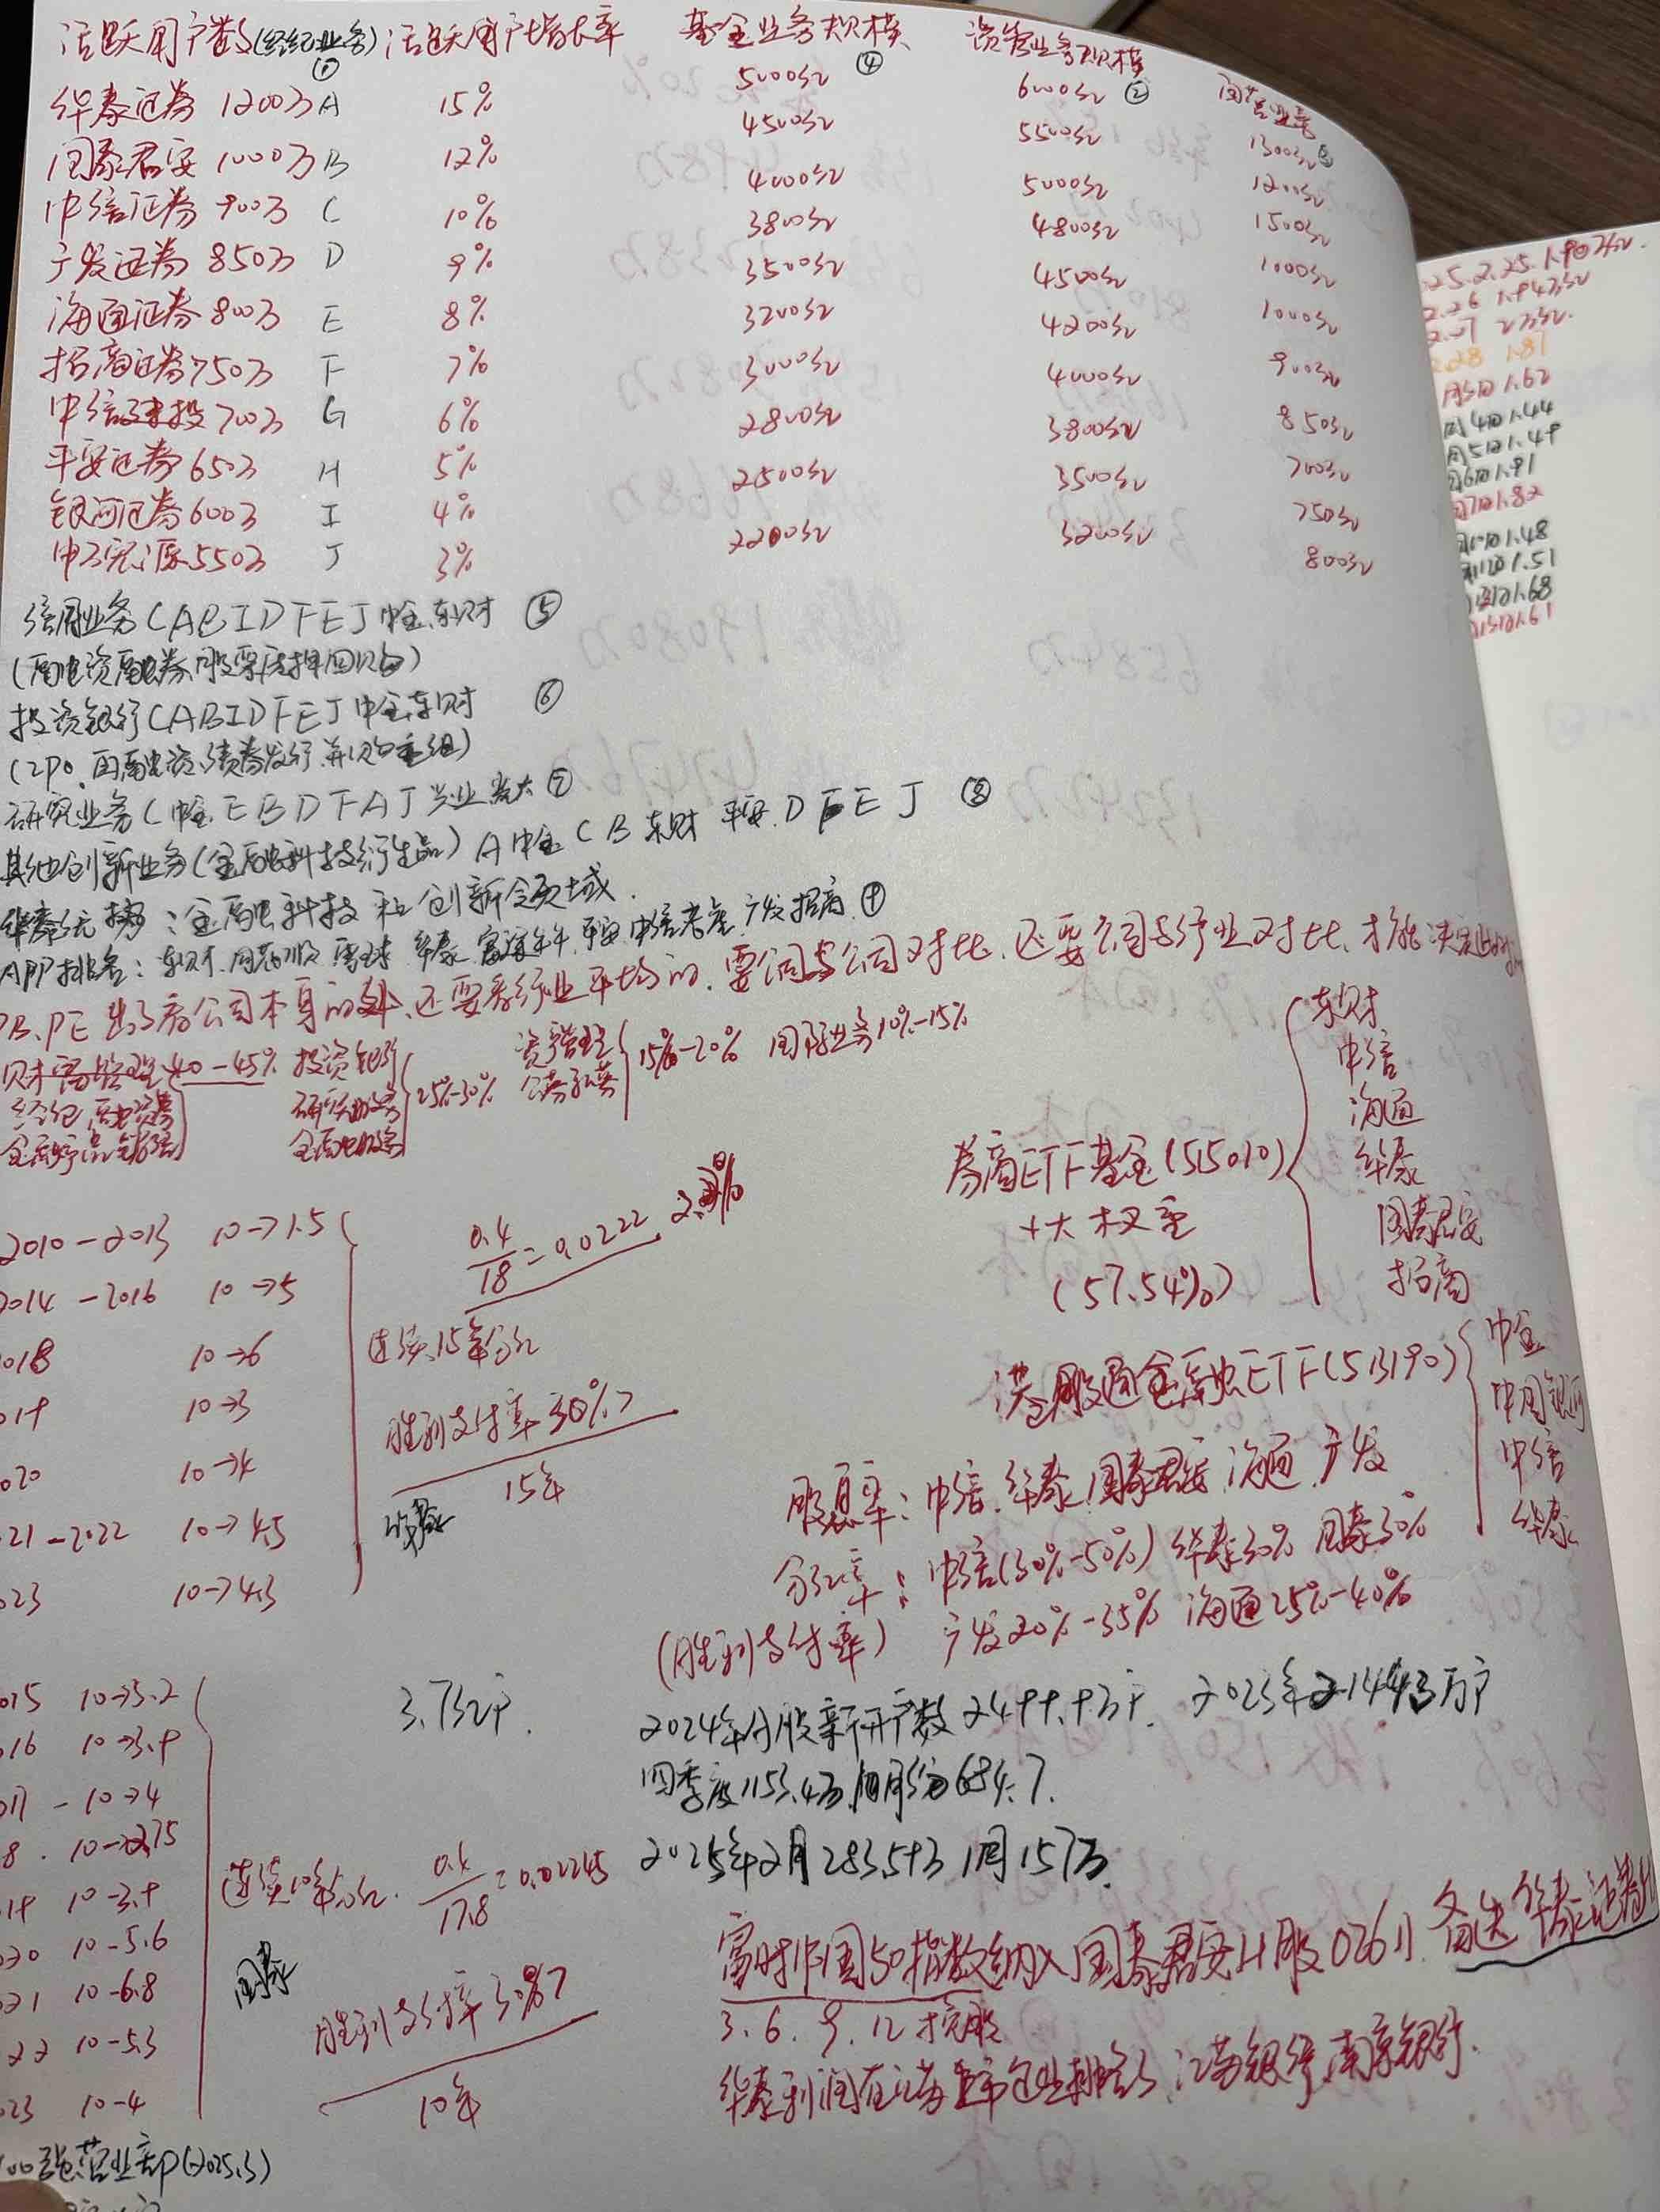 活跃用户数(经纪业务)① 活跃用户增长率 基金业务规模④ 资管业务规模② 自营业务③
华泰证券 1200万 A 15% 5000亿 6000亿 1300亿
国泰君安 1000万 B 12% 4500亿 5500亿 1200亿
中信证券 900万 C 10% 4000亿 5000亿 1500亿
广发证券 850万 D 9% 3800亿 4800亿 1000亿
海通证券 800万 E 8% 3500亿 4500亿 1000亿
招商证券 750万 F 7% 3200亿 4200亿 900亿
中信建投 700万 G 6% 3000亿 4000亿 850亿
平安证券 650万 H 5% 2800亿 3800亿 700亿
银河证券 600万 I 4% 2500亿 3500亿 750亿
申万宏源 550万 J 3% 2200亿 3200亿 800亿
信用业务 CABIDFEJ 中金.东财 ⑤
(融资融券.股票质押回购)
投资银行 CABIDFEJ 中金.东财 ⑥
(IPO.再融资.债券发行.并购重组)
研究业务 C 中金 EBDFAJ 兴业 光大 ⑦
其他创新业务(金融科技衍生品) A 中金 C B 东财 平安 D F E J ⑧
华泰优势:金融科技和创新领域.
APP排名:东财.同花顺 雪球 华泰 富途牛牛 平安 中信 广发 招商 ⑨
PB、PE 出了看公司本身的外、还要看行业平均的.要公司与公司对比.还要公司与行业对比.才能决定
财富管理 40-45% 投资银行 资产管理 15%-20% 国际业务10%-15%
经纪.融资券 研究业务 25%-30% 公募私募
金融产品销售
券商ETF基金(515010)
十大权重
(57.54%)
东财
中信
海通
华泰
国泰君安
招商
2010-2013 10→1.5
2014-2016 10→5
018 10→6
019 10→3
020 10→4
21-2022 10→4.5
023 10→4.3
0.4/18=0.0222
连续15年分红
胜利支付率30%?
15年
华泰
港股通金融ETF(513190)
中金
中国银河
中信
华泰
股息率:中信.华泰.国泰君安.海通.广发
分红率:中信(30%-50%) 华泰30% 国泰30%
(胜利支付率) 广发20%-35% 海通25%-40%
015 10→5.2
016 10→3.9
017 - 10→4
8. 10→2.75
019 10-3.9
020 10-5.6
21 10-6.8
22 10-5.3
23 10-4
3.7亿户.
连续10年分红. 0.4/17.8=0.02245
国泰
胜利支付率30%?
10年
2024年A股新开户数2499.9万户. 2023年2144.3万户
四季度1153.4万.10月份684.7.
2025年2月283.59万 1月157万.
富时中国50指数纳入国泰君安H股02611.备选华泰证券H
3.6.9.12换股
华泰利润在江苏 企业排名3.江苏银行.南京银行.
100强营业部(2025.3)
25.2.25. 1.90万亿.
2.26 1.94万亿
2.27 2万亿.
2.28 1.87
3月3日1.62
月4日1.44
月5日1.49
月6日1.91
月7日1.82
月10日1.48
月11日1.51
月12日1.68
月13日1.61